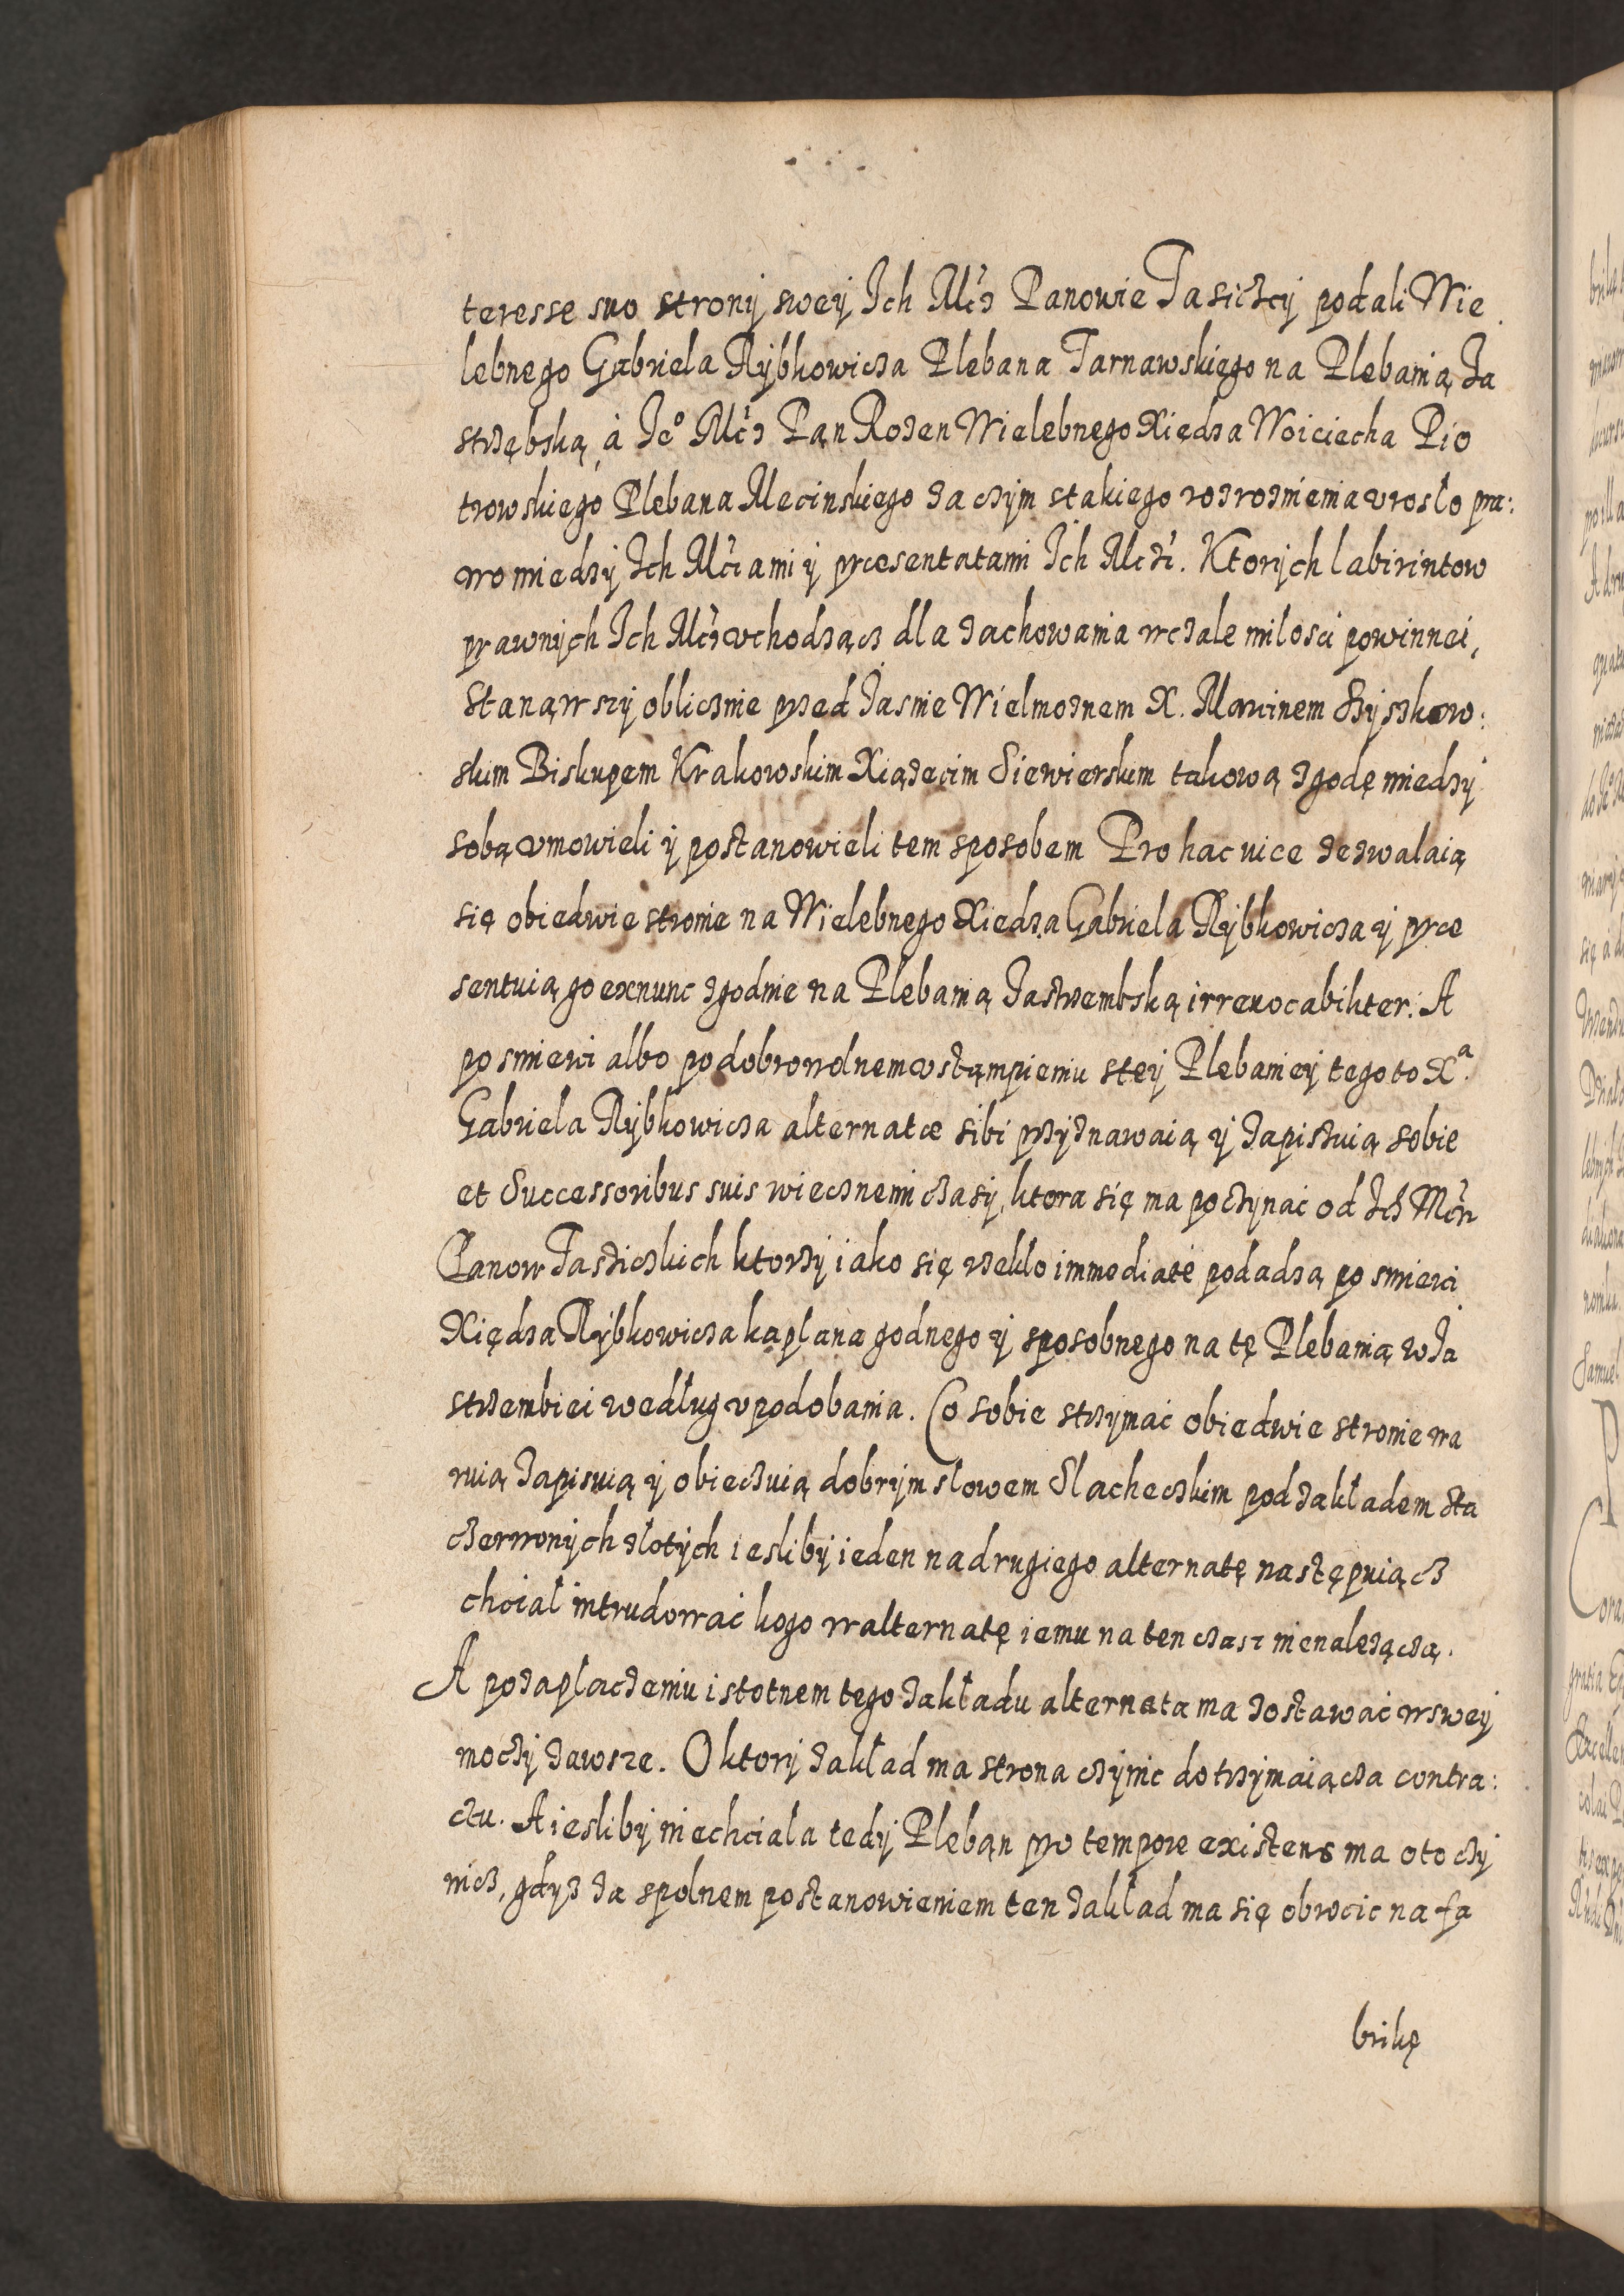 teresse suo strony swey Ich Mćz Panowie Tasiczcy podali Wie
lebnego Gabriela Rybkowicza Plebana Tarnawskiego na Plebanią Ja
strzębską, à Jeº Mćz Pąn Rozen Wielebnego Xiędza Woiciecha Pio
trowskiego Plebana Mecinskiego za czym stakiego rozroznienia vrosło pra:
wo miedzy Ich Mćiami y præsentatami Ich Mczi. Ktorych labirintow
prawnych Ich Mćz vchodzącz dla zachowania wczale milosci powinnei,
Stanąwszy oblicznie przed Jasnie Wielmoznem X. Marcinem Szyszkow:
skim Biskupem Krakowskim Xiązecim Siewierskim takową zgodę miedzy
sobą vmowieli y postanowieli tem sposobem Pro hac vice zezwalaią
się obiedwie stronie na Wielebnego Xiedza Gabriela Rybkowicza y præ
sentuią go exnunc zgodnie na Plebanią Jastrzembską irreuocabiliter. A
po smierci albo podobrowolnem vstąmpieniu stey Plebaniey tego to Xª.
Gabriela Rybkowicza alternatæ sibi przyznawaią y zapiszuią sobie
et Successoribus suis wiecznemi czasy, ktora się ma poczynać od Ich Mćzi
Panow Tasziczkich ktorzy iako się rzekło immediatè podadzą po smierci
Xiędza Rybkowicza kaplana godnego y sposobnego na tę Plebanią w Ja
strzembiei według vpodobania. Co sobie strzymać obiedwie stronie wa
ruią zapisuią y obieczuią dobrym slowem Slacheczkim pod zakładem sta
czerwonych złotych iesliby ieden na drugiego alternatę następuiącz
chciał intrudowac kogo w alternatę iemu na ten czasz nienalezączą.
A po zaplaczeniu istotnem tego zakładu alternata ma zostawać w swey
moczy zawsze. O ktory zakład ma strona czynic dotrzymaiącza contra:
ctu. A iesliby niechciala tedy Plebąn pro tempore existens ma oto czy
nicz, gdysz za spolnem postanowieniem ten zakład ma się obrocic na fa
brikę